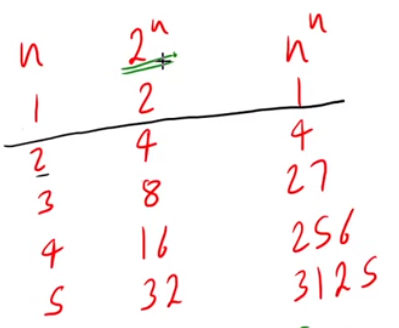 n 2ⁿ nⁿ
1 2 1
2 4 4
3 8 27
4 16 256
5 32 3125